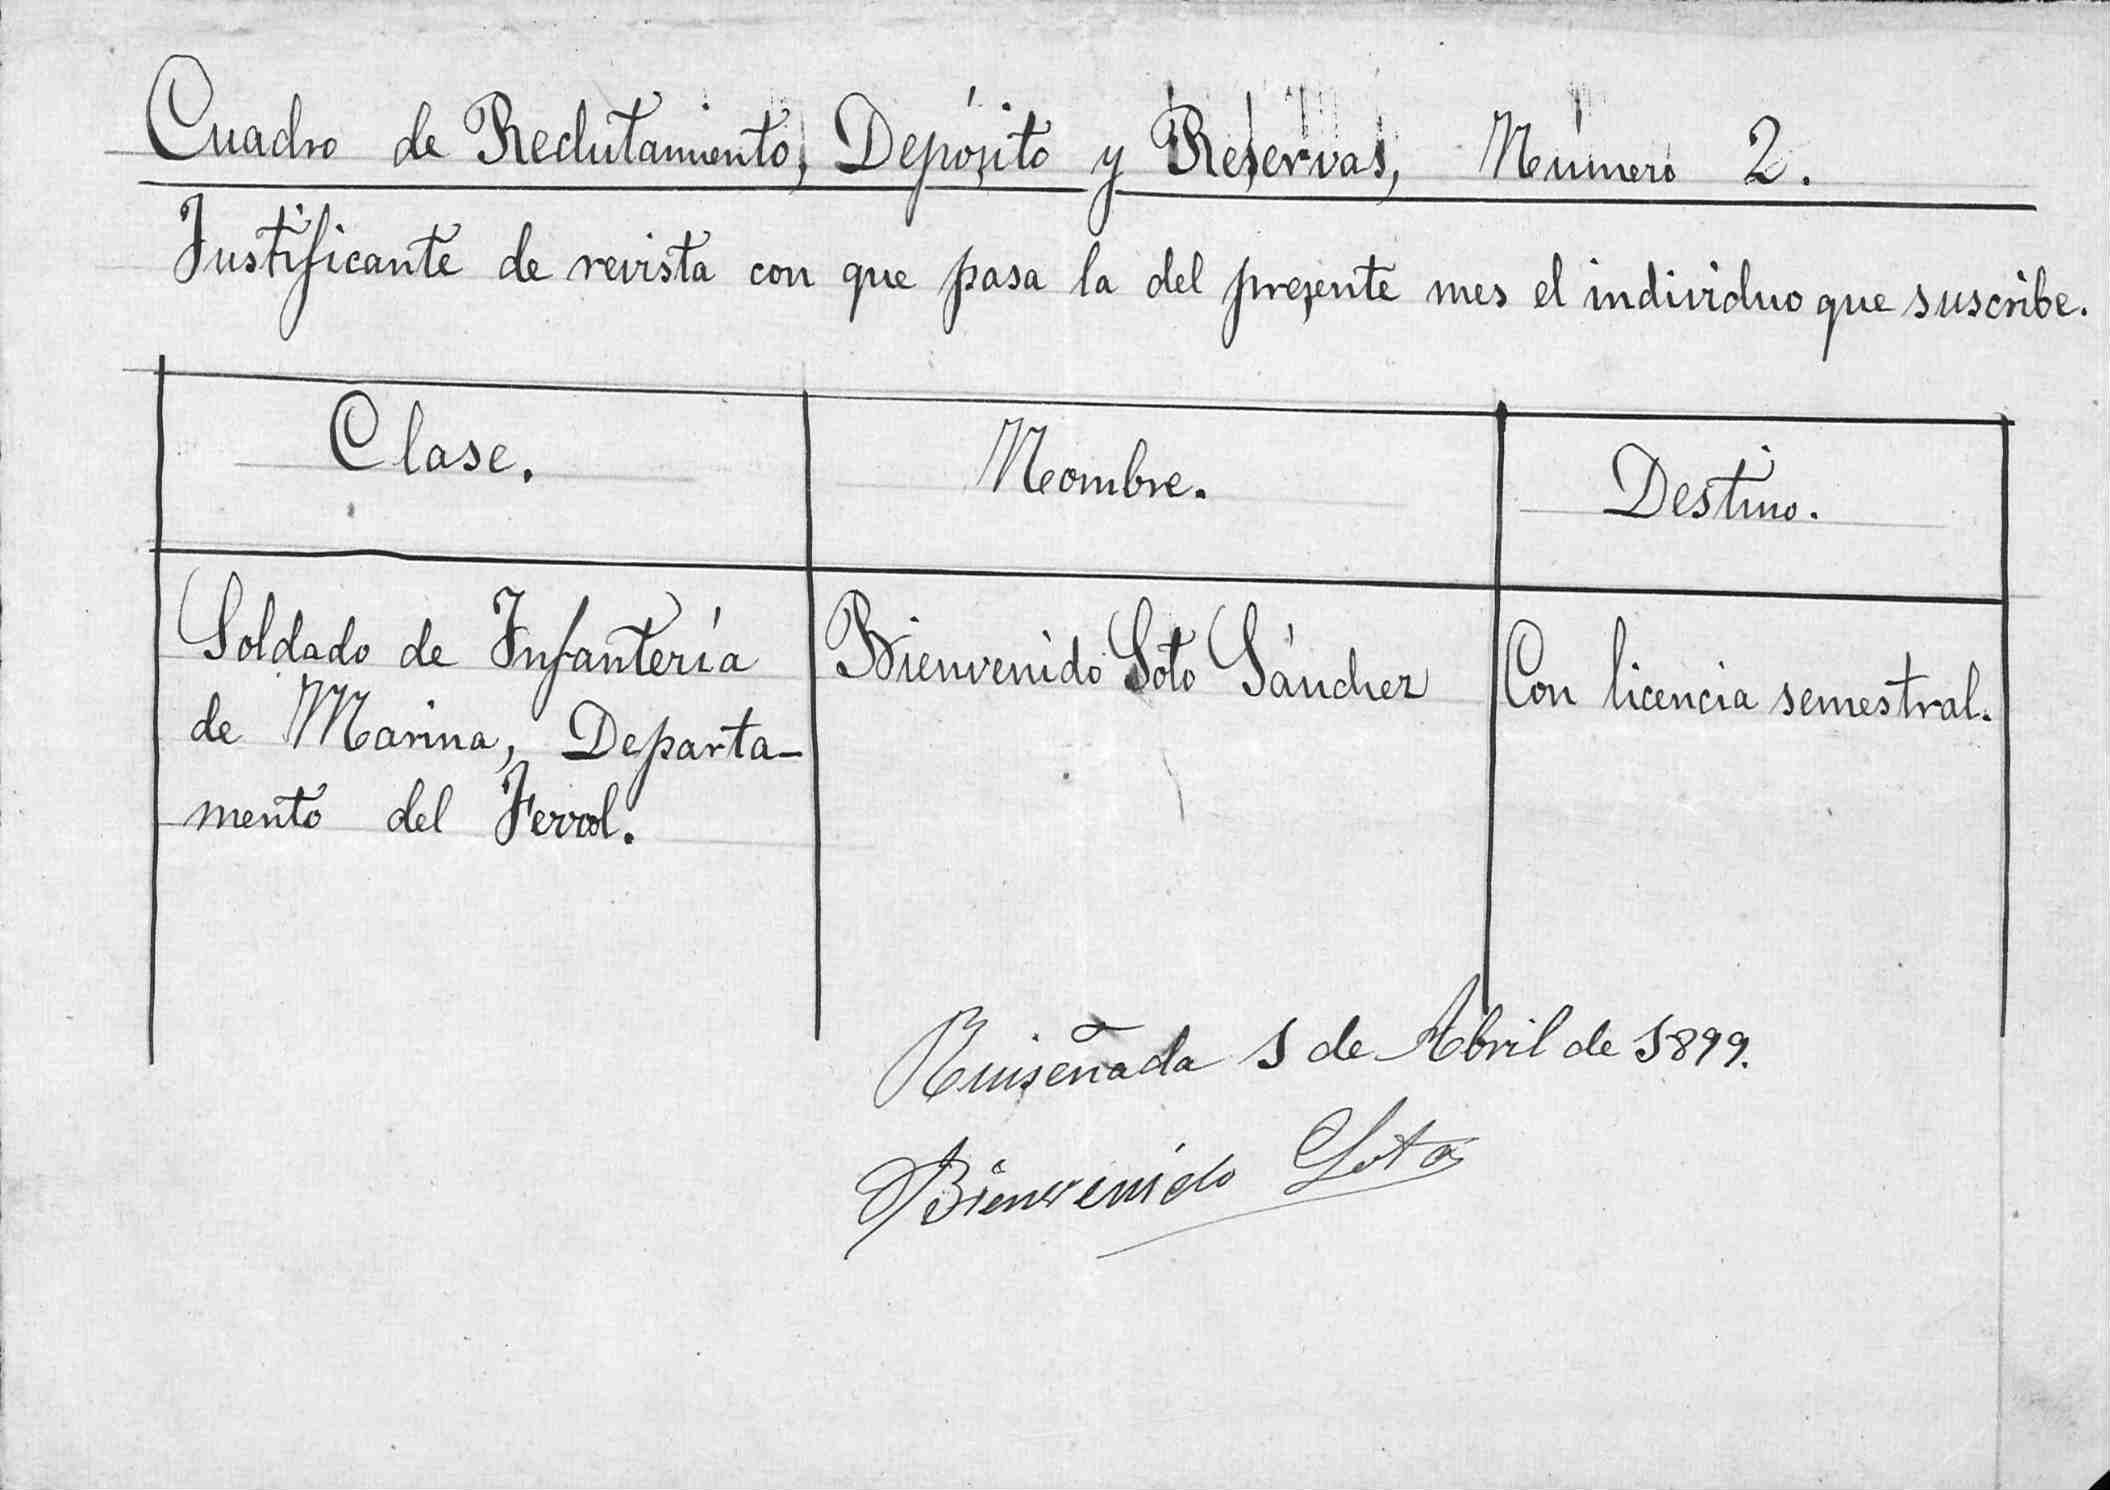 Cuadro de Reclutamiento, Depósito y Reservas, Número 2.
Justificante de revista con que pasa la del presente mes el individuo que suscribe.
Clase.
Nombre.
Destino.
Soldado de Infantería
de Marina, Departa-
mento del Ferrol.
Bienvenido Soto Sánchez
Con licencia semestral.
Ruiseñada 1 de Abril de 1899.
Bienvenido Soto